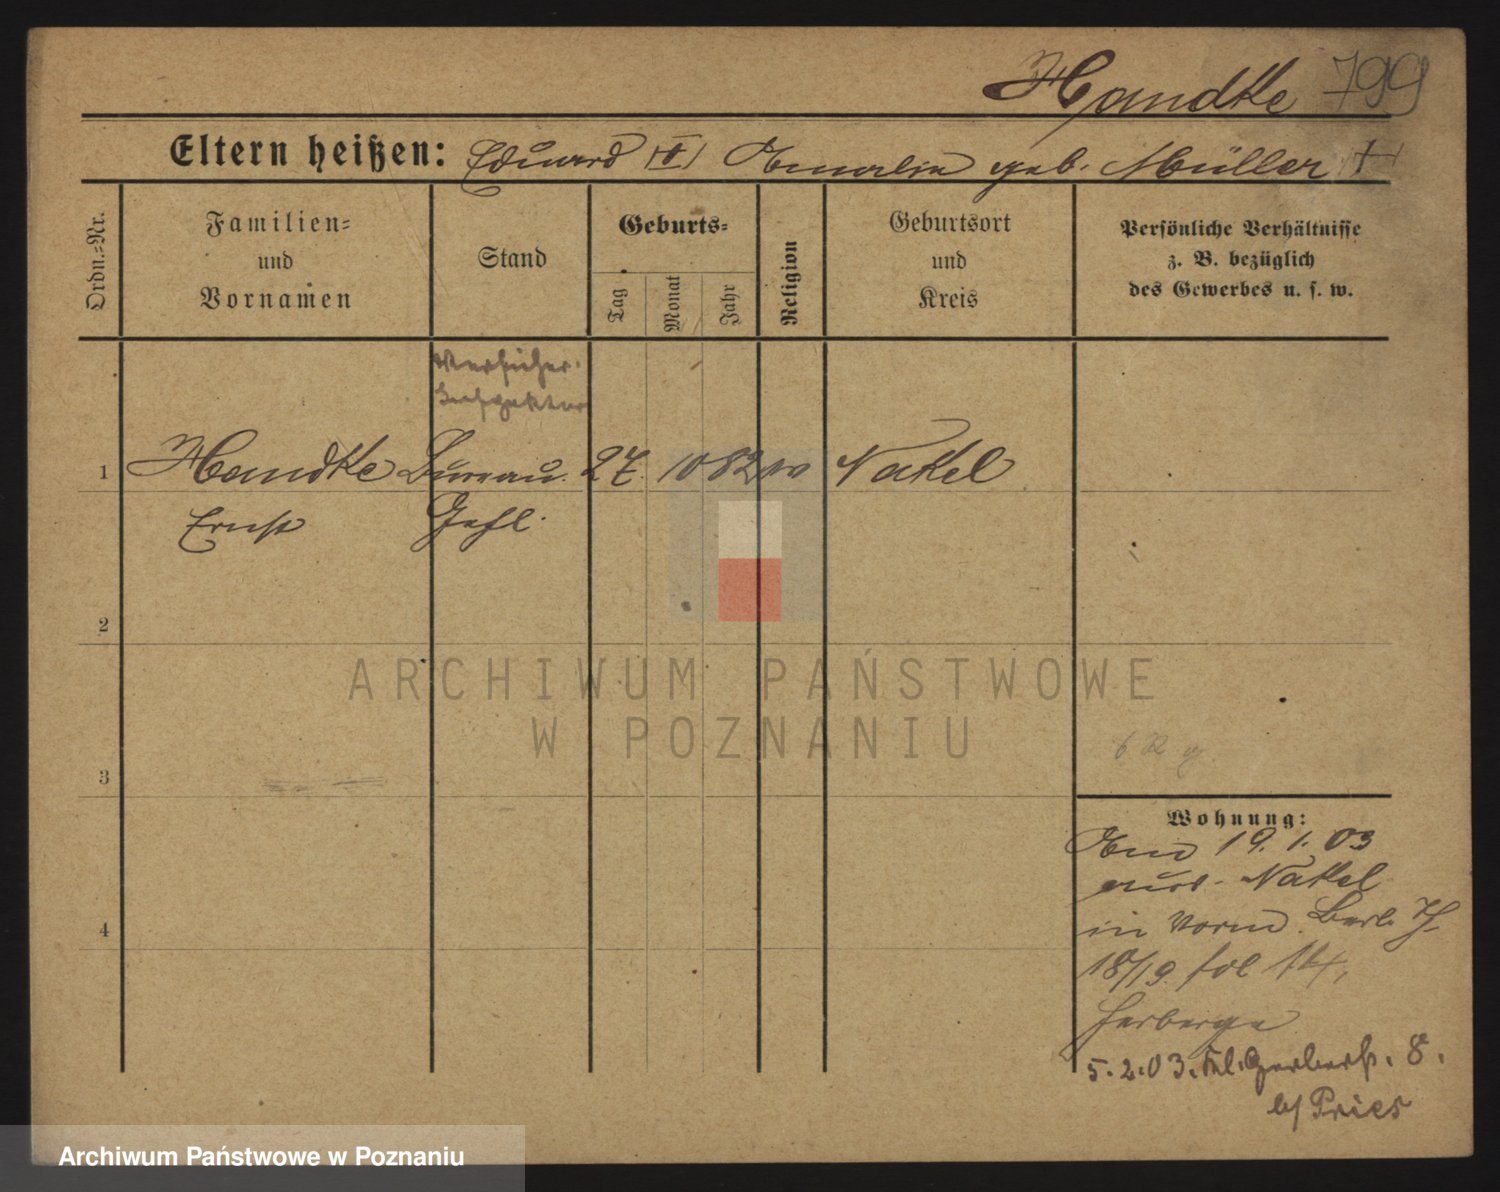 Handke 799
Eltern heißen: Eduard Emalie geb. Müller
Ordn.=Nr.
Familien=
und
Vornamen
Stand
Geburts=
Tag
Monat
Jahr
Religion
Geburtsort
und
Kreis
Persönliche Verhältnisse
z. B. bezüglich
des Gewerbes u. s. w.
Versicher.
Inspektor
1 Handke Bureau 27. 10 82 Nakel
Ernst Gehl.
2
3
4
Wohnung:
19. 1. 03
aus Nakel
in Vorm. Berl.
18/19. fol
Herberge
5. 2. 03. Kl. Gerberst. 8.
b/ Pries
ARCHIWUM PAŃSTWOWE
W POZNANIU
Archiwum Państwowe w Poznaniu